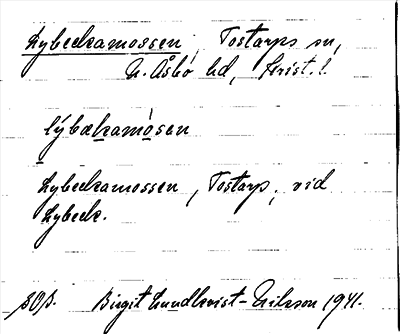 Lybeckamossen, Tostarps sn,
N. Åsbo hd, Krist. l.
lýbækamòsen
Lybeckamossen, Tostarp, vid
Lybeck.
Birgit Lundkvist-Nilsson 1941.